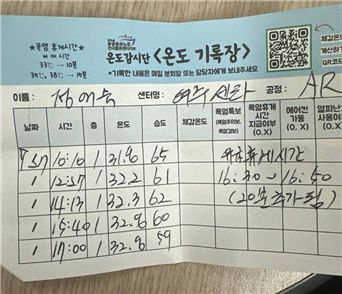 폭염 휴게시간
33℃ → 10분
35℃, 38 → 15분
온도감시단 <온도 기록장>
*기록한 내용은 매일 분회장 또는 담당자에게 보내주세요
체감온도
계산하기
QR코드
이름 : 센터명 : 공정 : AR
날짜 시간 층 온도 습도 체감온도 폭염특보 (폭염주의보, 폭염경보) 폭염휴게시간 지급여부 (O, X) 에어컨 가동 (O, X) 사용여부 (O, X)
10:10 1 31.8 65 휴게시간
1 12:57 1 32.2 61 16:30 - 16:50
1 14:13 1 32.3 62 (20분 추가됨)
1 15:40 1 32.8 60
1 17:00 1 32.8 59